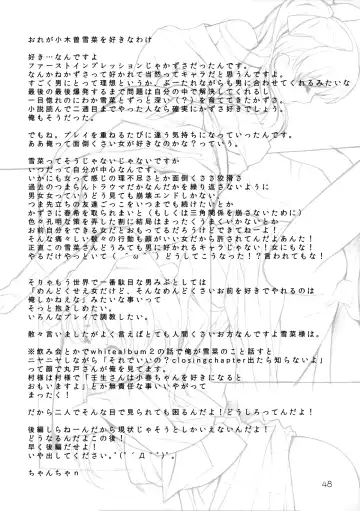 おれが小木曽雪菜を好きなわけ
好き…なんですよ
ファーストインプレッションじゃかずさだったんです。
なんかねかずさって好かれて当然ってキャラだと思うんですよ。
すごく男にとって理想というか、ぶーたれながらも男に合わせてくれるみたいな
最後の最後爆発するまで問題は自分の中で解決してくれるし
一目惚れのにわか雪菜とずっと深い（？）を育ててきたかずさ。
小説読んで二週目までやった人なら確実にかずさ好きでしょう。
俺もそうだった。
でもね、プレイを重ねるたびに違う気持ちになっていったんです。
ああ俺って面倒くさい女が好きなのかな？っていう。
雪菜ってそうじゃないじゃないですか
いつだって自分が中心なんです。
いかにも女って感じの理不尽さとか面倒くささ狡猾さ
過去のつまらんトラウマだかなんだかを繰り返さないように
男女女っていうどう見ても崩壊エンドしかない
つま先立ちの友達ごっこをいつまでも続けたいとか
かずさに春希を取られまいと（もしくは三角関係を崩さないために）
色々孔明な策を弄した割に結局はまったくうまくいかないとか
お前自分をできる女だとおもってるだろうけどできてねーよ！
そんな痛々しい数々の行動も顔がいい女だから許されてんだよあんた！
正直このままじゃ雪菜さんどうみても男に好かれるキャラじゃない！女にも
やるだけやっといて（´；ω；｀）どうしてこうなった！？言われてもな！
そりゃもう世界で一番駄目な男みぶとしては
「めんどくせえ女だけど、そんなめんどくさいお前を好きでやれるのは
俺しかねえな」みたいな事いって
そっと抱きしめたい。
いろんなプレイで調教したい。
散々言いましたがよく言えばとても人間くさいお方なんですよ雪菜様は。
※飲み会とかでwhitealbum2の話で俺が雪菜のこと話すと
ニヤニヤしながら「それでいいの？closingchapter出たら知らないよ」
って顔で丸戸さんが俺を見てます。
村様は村様で「壬生さんは小春ちゃんを好きになると
おもいますよ」とか無責任な事いいやがって
まったく！
だから二人でそんな目で見られても困るんだよ！どうしろってんだよ！
後編しらねーんだから現状じゃそうとしかいえないんだよ！
どうなるんだよこの後！
早く後編だせよ！
いや出してください。
ちゃんちゃn
48